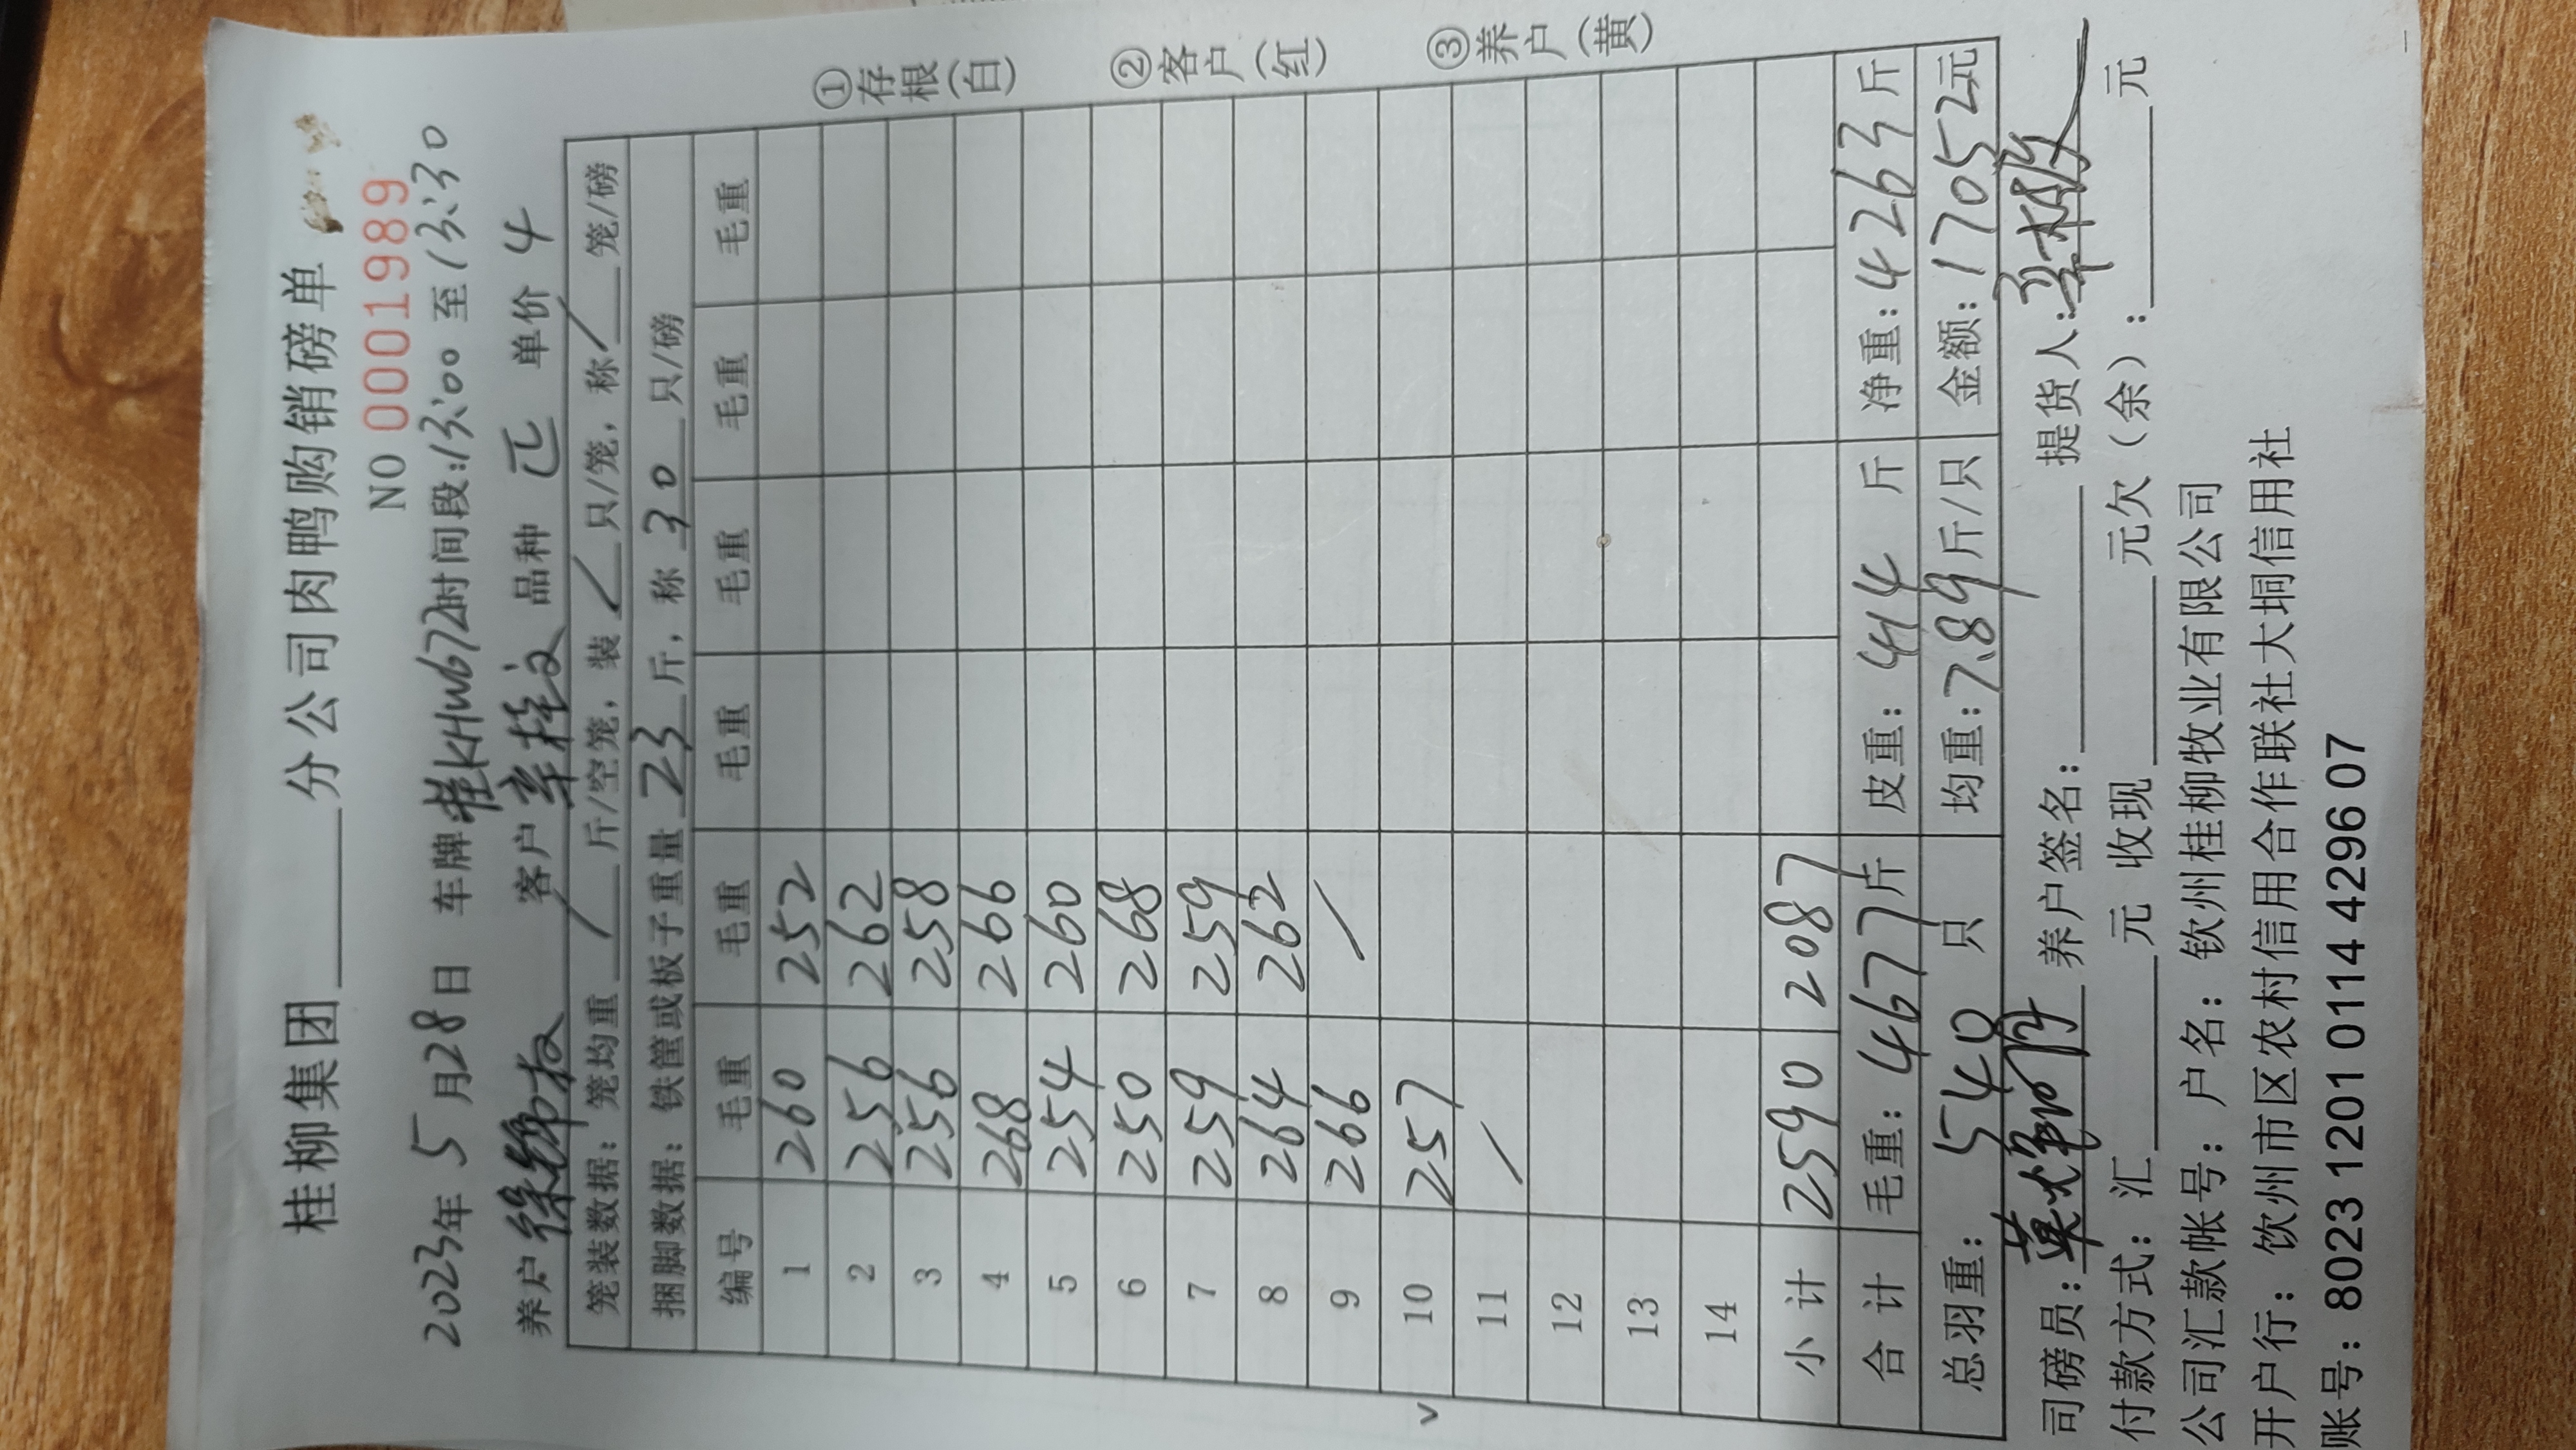 桂柳集团 分公司肉鸭购销磅单
NO 0001989
2023年 5月28日 车牌桂KHW672时间段:13:00 至 13:30
养户 客户 品种 单价 4
笼装数据: 笼均重 / 斤/空笼, 装 / 只/笼, 称 / 笼/磅
捆脚数据: 铁筐或板子重量 23 斤, 称 30 只/磅
编号 毛重 毛重 毛重 毛重 毛重 毛重
1 260 252
2 256 262
3 256 258
4 268 266
5 254 260
6 250 268
7 259 259
8 264 262
9 266 /
10 257
11 /
12
13
14
小计 2590 2087
合计 毛重: 4677斤 皮重: 414 斤 净重: 4263斤
总羽重: 540 只 均重: 7.89斤/只 金额: 17052元
司磅员: 养户签名: 提货人:
付款方式: 汇 元 收现 元欠(余): 元
公司汇款帐号: 户名: 钦州桂柳牧业有限公司
开户行: 钦州市区农村信用合作联社大垌信用社
账号: 8023 1201 0114 4296 07
①存根(白) ②客户(红) ③养户(黄)